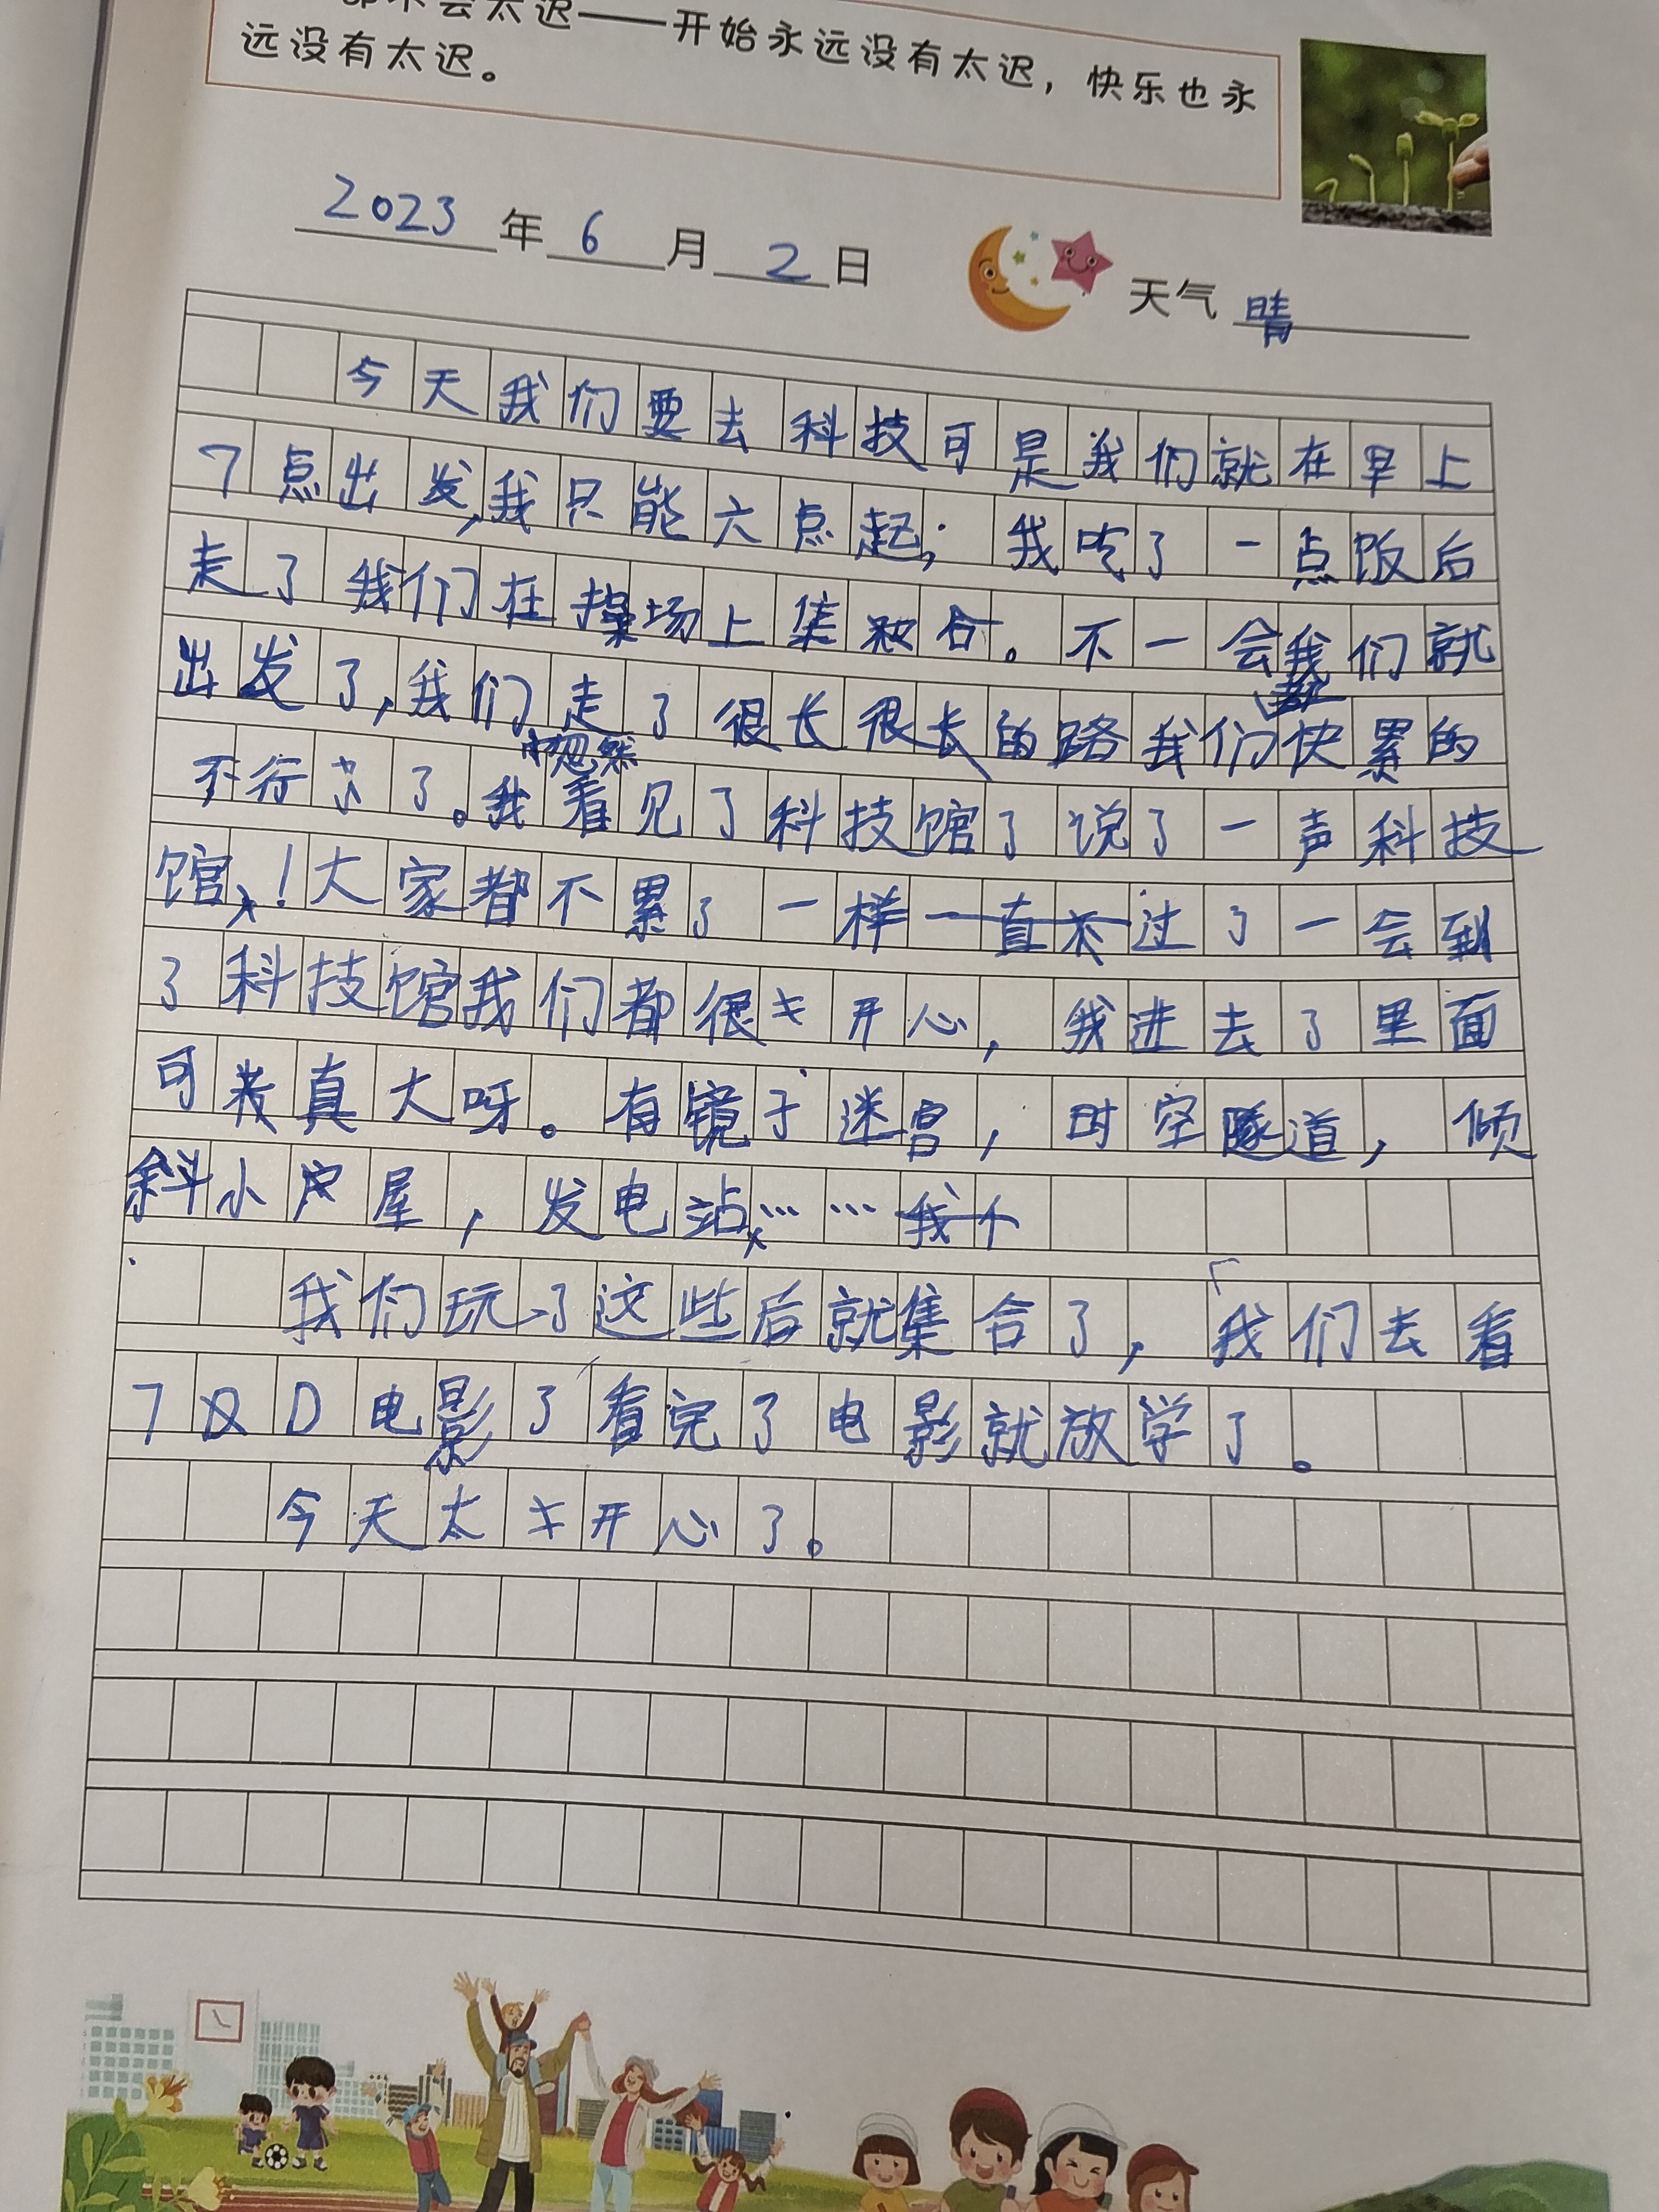 都不会太迟——开始永远没有太迟，快乐也永
远没有太迟。
2023年6月2日 天气 晴
今天我们要去科技可是我们就在早上
7点出发，我只能六点起；我吃了一点饭后
走了我们在操场上集合。不一会我们就
出发了，我们走了很长很长的路我们都快累的
不行了。我忽然看见了科技馆了说了一声科技
馆！大家都不累了一样过了一会到
了科技馆我们都很开心，我进去了里面
可真大呀。有镜子迷宫，时空隧道，倾
斜小屋，发电站……
我们玩了这些后就集合了，我们去看
7D电影了看完了电影就放学了。
今天太开心了。